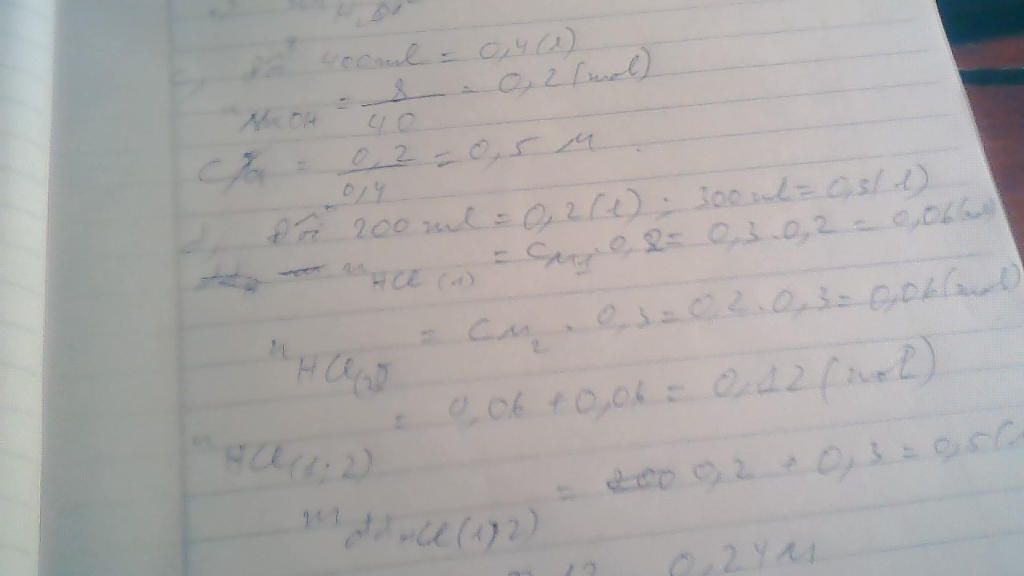 c, Đổi 400ml = 0,4(l)
nNaOH = 8/40 = 0,2 (mol)
CM = 0,2/0,4 = 0,5 M
d, Đổi 200 ml = 0,2(l) ; 300 ml = 0,3(l)
nHCl (1) = CM1 . 0,2 = 0,3 . 0,2 = 0,06 (mol)
nHCl(2) = CM2 . 0,3 = 0,2 . 0,3 = 0,06 (mol)
nHCl(1;2) = 0,06 + 0,06 = 0,12 (mol)
mddHCl(1,2) = 0,2 + 0,3 = 0,5(
0,24M